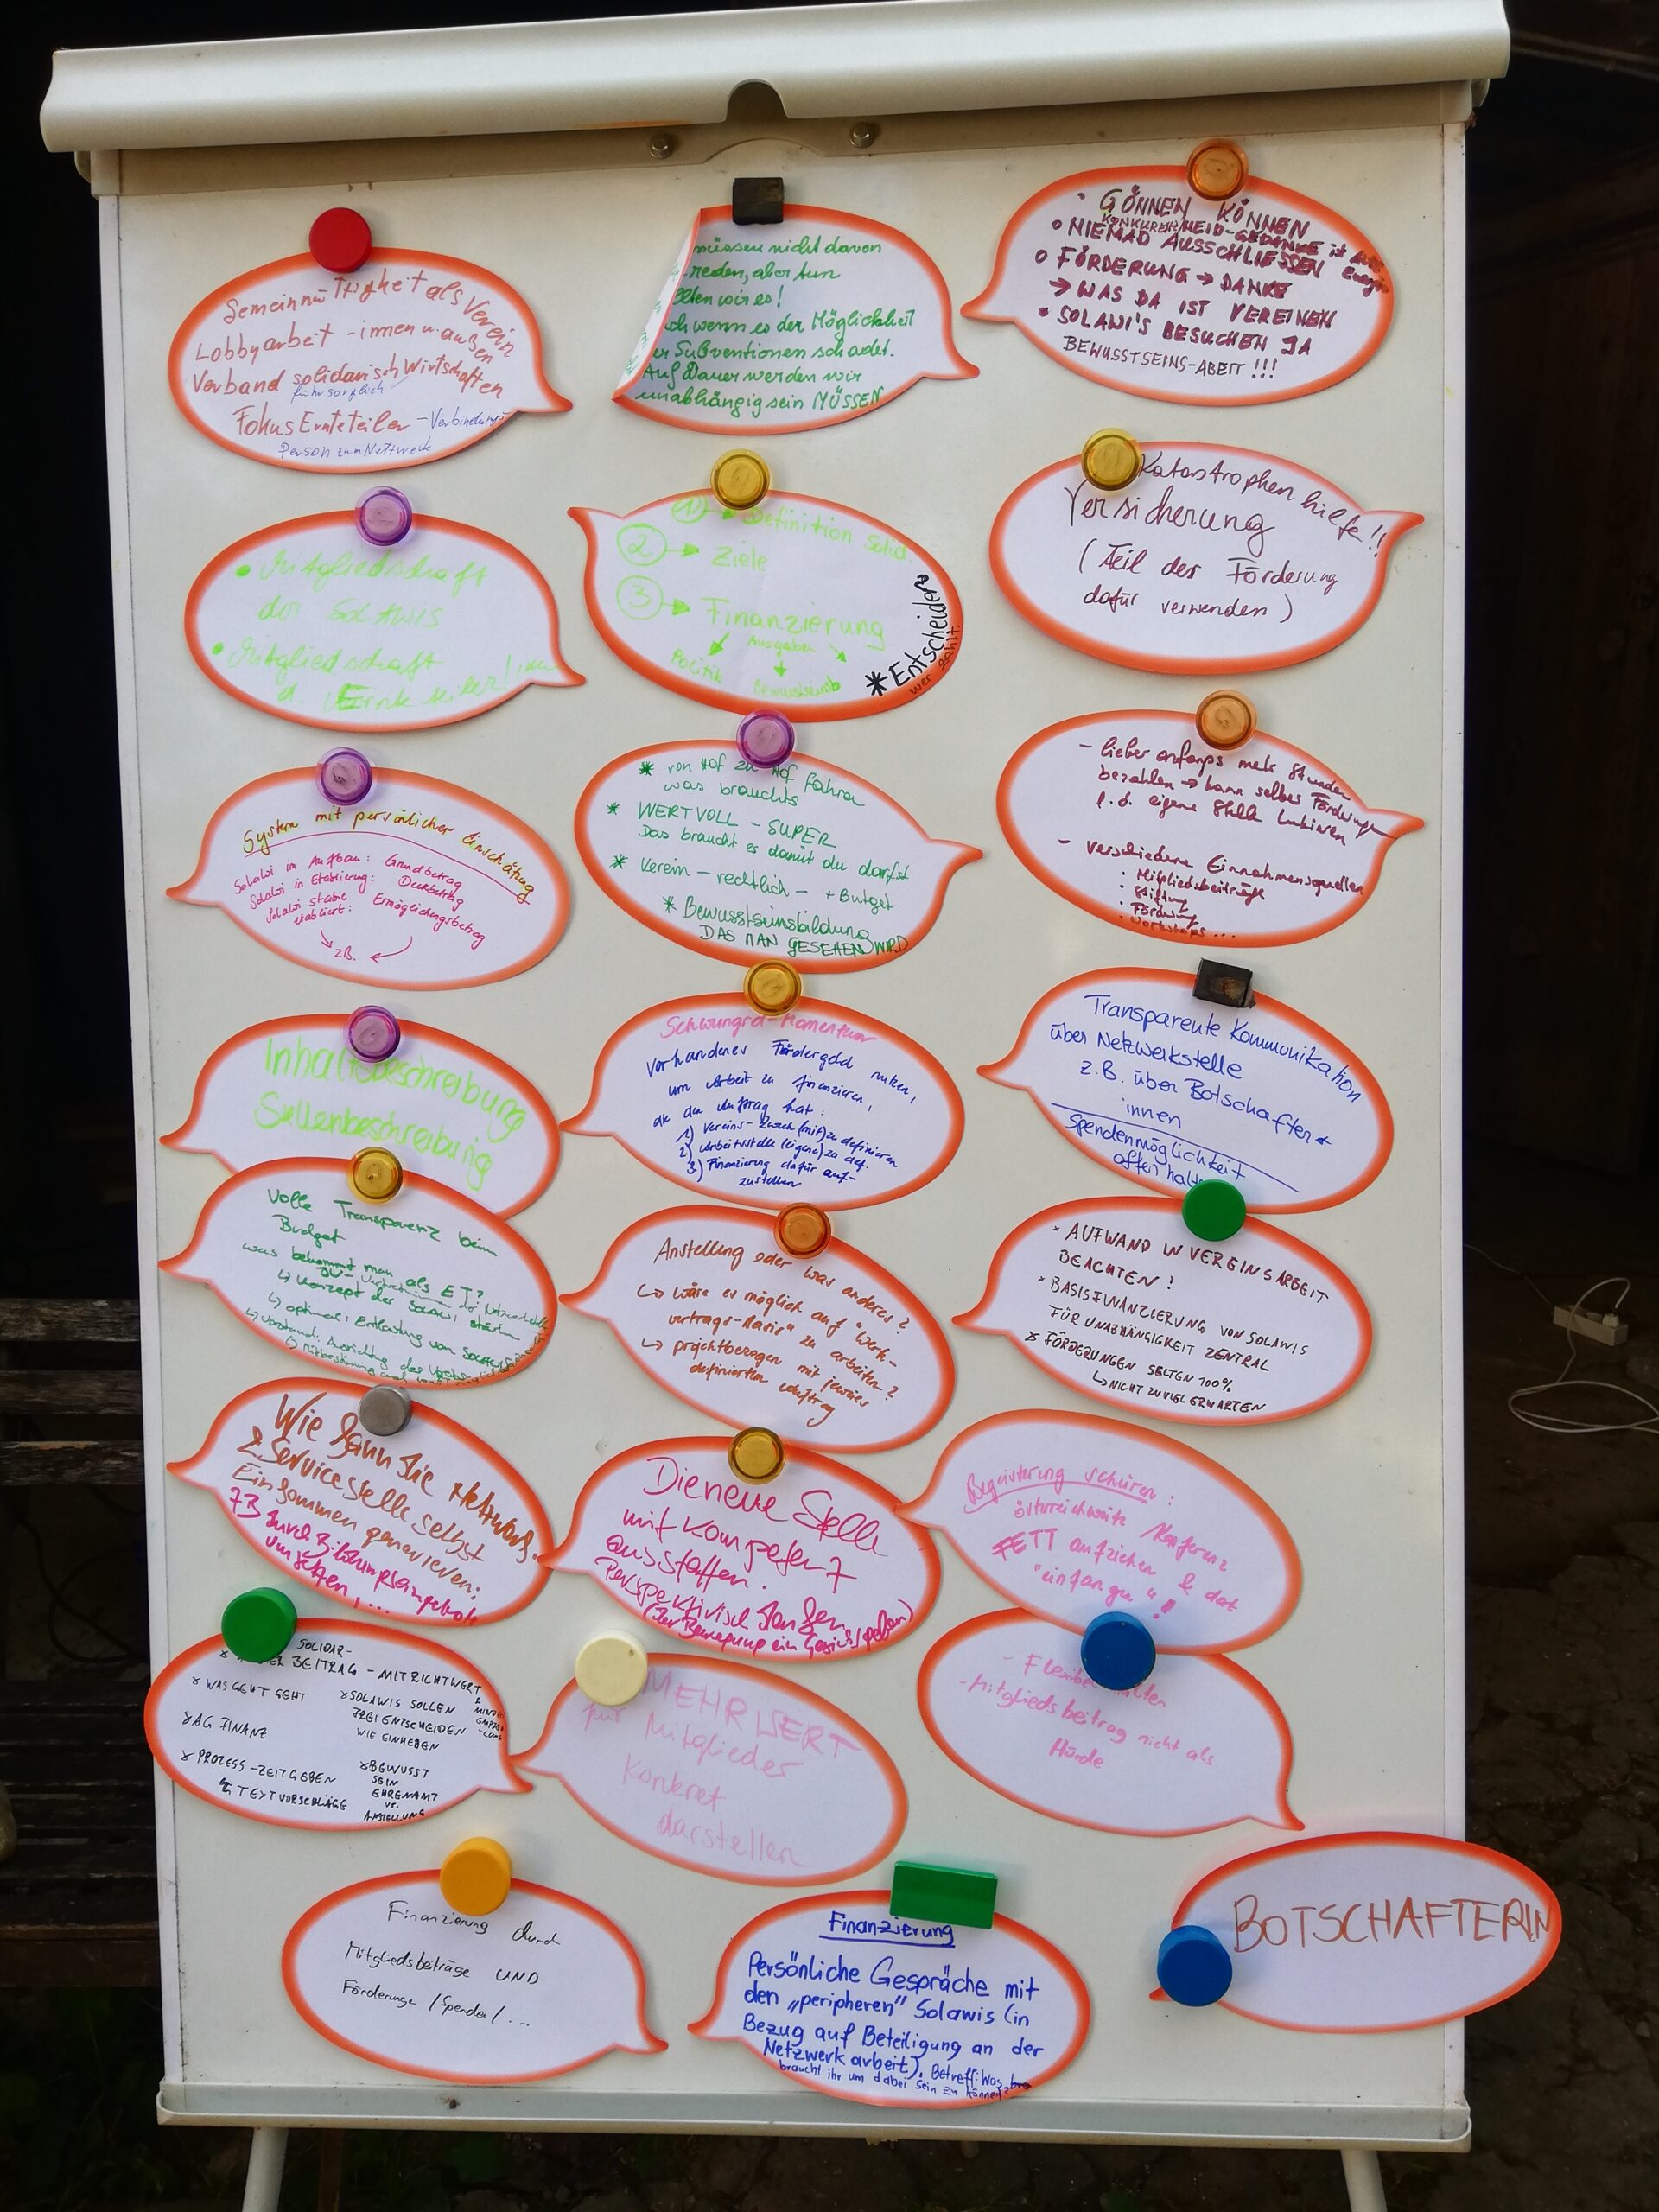 Gemeinnüttigkeit als Verein
Lobbyarbeit - innen u. außen
Verband solidarisch Wirtschaften
Fokus Ernteteiler - Verbindungs
Person zum Nettwerk
müssen nicht davon
reden, aber tun
wir es!
wenn es der Möglichkeit
Subventionen schadet.
Auf Dauer werden wir
unabhängig sein MÜSSEN
• GÖNNEN KÖNNEN
KONKURENZ NEID-GEDANKE ist
• NIEMAD AUSSCHLIESSEN
o FÖRDERUNG → DANKE
→ WAS DA IST VEREINEN
• SOLAWI'S BESUCHEN JA
BEWUSSTSEINS-ABEIT !!!
• Mitgliedschaft
der SOLAWIS
• Mitgliedschaft
d. Ernteteiler/innen
① → Definition Solid.
② → Ziele
③ → Finanzierung
Ausgaben
Politik
Bewusstseinsb
* Entscheiden
wer zahlt.
Katastrophenhilfe!!
Versicherung
(Teil der Förderung
dafür verwenden)
System mit persönlicher Einschätzung
Solawi im Aufbau: Grundbetrag
Solawi in Etablierung:
Solawi stabil Ermöglichungsbetrag
etabliert:
zB.
* von Hof zu Hof fahren
was brauchts
* WERTVOLL - SUPER
Das braucht es damit du darfst
* Verein - rechtlich - + Butget
* Bewusstseinsbildung
DAS MAN GESEHEN WIRD
- lieber anfangs mehr Stunden
bezahlen → kann selber Förderungen
f. d. eigene Stelle lukrieren
- verschiedene Einnahmensquellen
• Mitgliedsbeiträge
• Stiftung
• Förderung
• Workshops ...
Inhaltsbeschreibung
Stellenbeschreibung
Schwungrad-Momentum
Vorhandenes Fördergeld nutzen,
um Arbeit zu finanzieren,
die den Auftrag hat:
1) Vereins-Zweck (mit) zu definieren
2) Arbeitsstelle (eigene) zu def.
3) Finanzierung dafür auf-
zustellen
Transparente Kommunikation
über Netzwerkstelle
z.B. über Botschafter*
innen
Spendenmöglichkeit
offen halten
Volle Transparenz beim
Budget
was bekommt man als ET?
↳ Konzept der SOLAWI stärken
↳ optimal: Entlastung von
Anstellung oder was anderes?
↳ wäre es möglich auf "Werk-
vertrags-Basis" zu arbeiten?
↳ projektbezogen mit jeweils
definierten Auftrag
* AUFWAND IN VEREINSARBEIT
BEACHTEN!
* BASISFINANZIERUNG VON SOLAWIS
FÜR UNABHÄNGIGKEIT ZENTRAL
* FÖRDERUNGEN SELTEN 100%
↳ NICHT ZU VIEL ERWARTEN
Wie kann die Netzwerk-
& Servicestelle selbst
Einkommen generieren:
zB durch Bildungsangebote
umsetzen, ...
Die neue Stelle
mit Kompetenz
ausstatten.
Perspektivisch denken
(der Bewegung ein Gesicht geben)
Begeisterung schüren:
österreichweite Konferenz
FETT aufziehen & dort
"einfangen"!
SOLIDAR-
BEITRAG - MIT RICHTWERT
* WAS GEHT GEHT
* SOLAWIS SOLLEN
FREI ENTSCHEIDEN
WIE EINHEBEN
* AG FINANZ
* PROZESS - ZEIT GEBEN
↳ TEXTVORSCHLÄGE
* BEWUSST
SEIN
EHRENAMT
VS.
ANSTELLUNG
MEHRWERT
für Mitglieder
konkret
darstellen
- Mitgliedsbeitrag nicht als
Hürde
Finanzierung durch
Mitgliedsbeiträge UND
Förderunge /Spenden/ ...
Finanzierung
Persönliche Gespräche mit
den „peripheren" Solawis (in
Bezug auf Beteiligung an der
Netzwerkarbeit), Betreff: Was
braucht ihr um dabei sein zu können?
BOTSCHAFTERIN